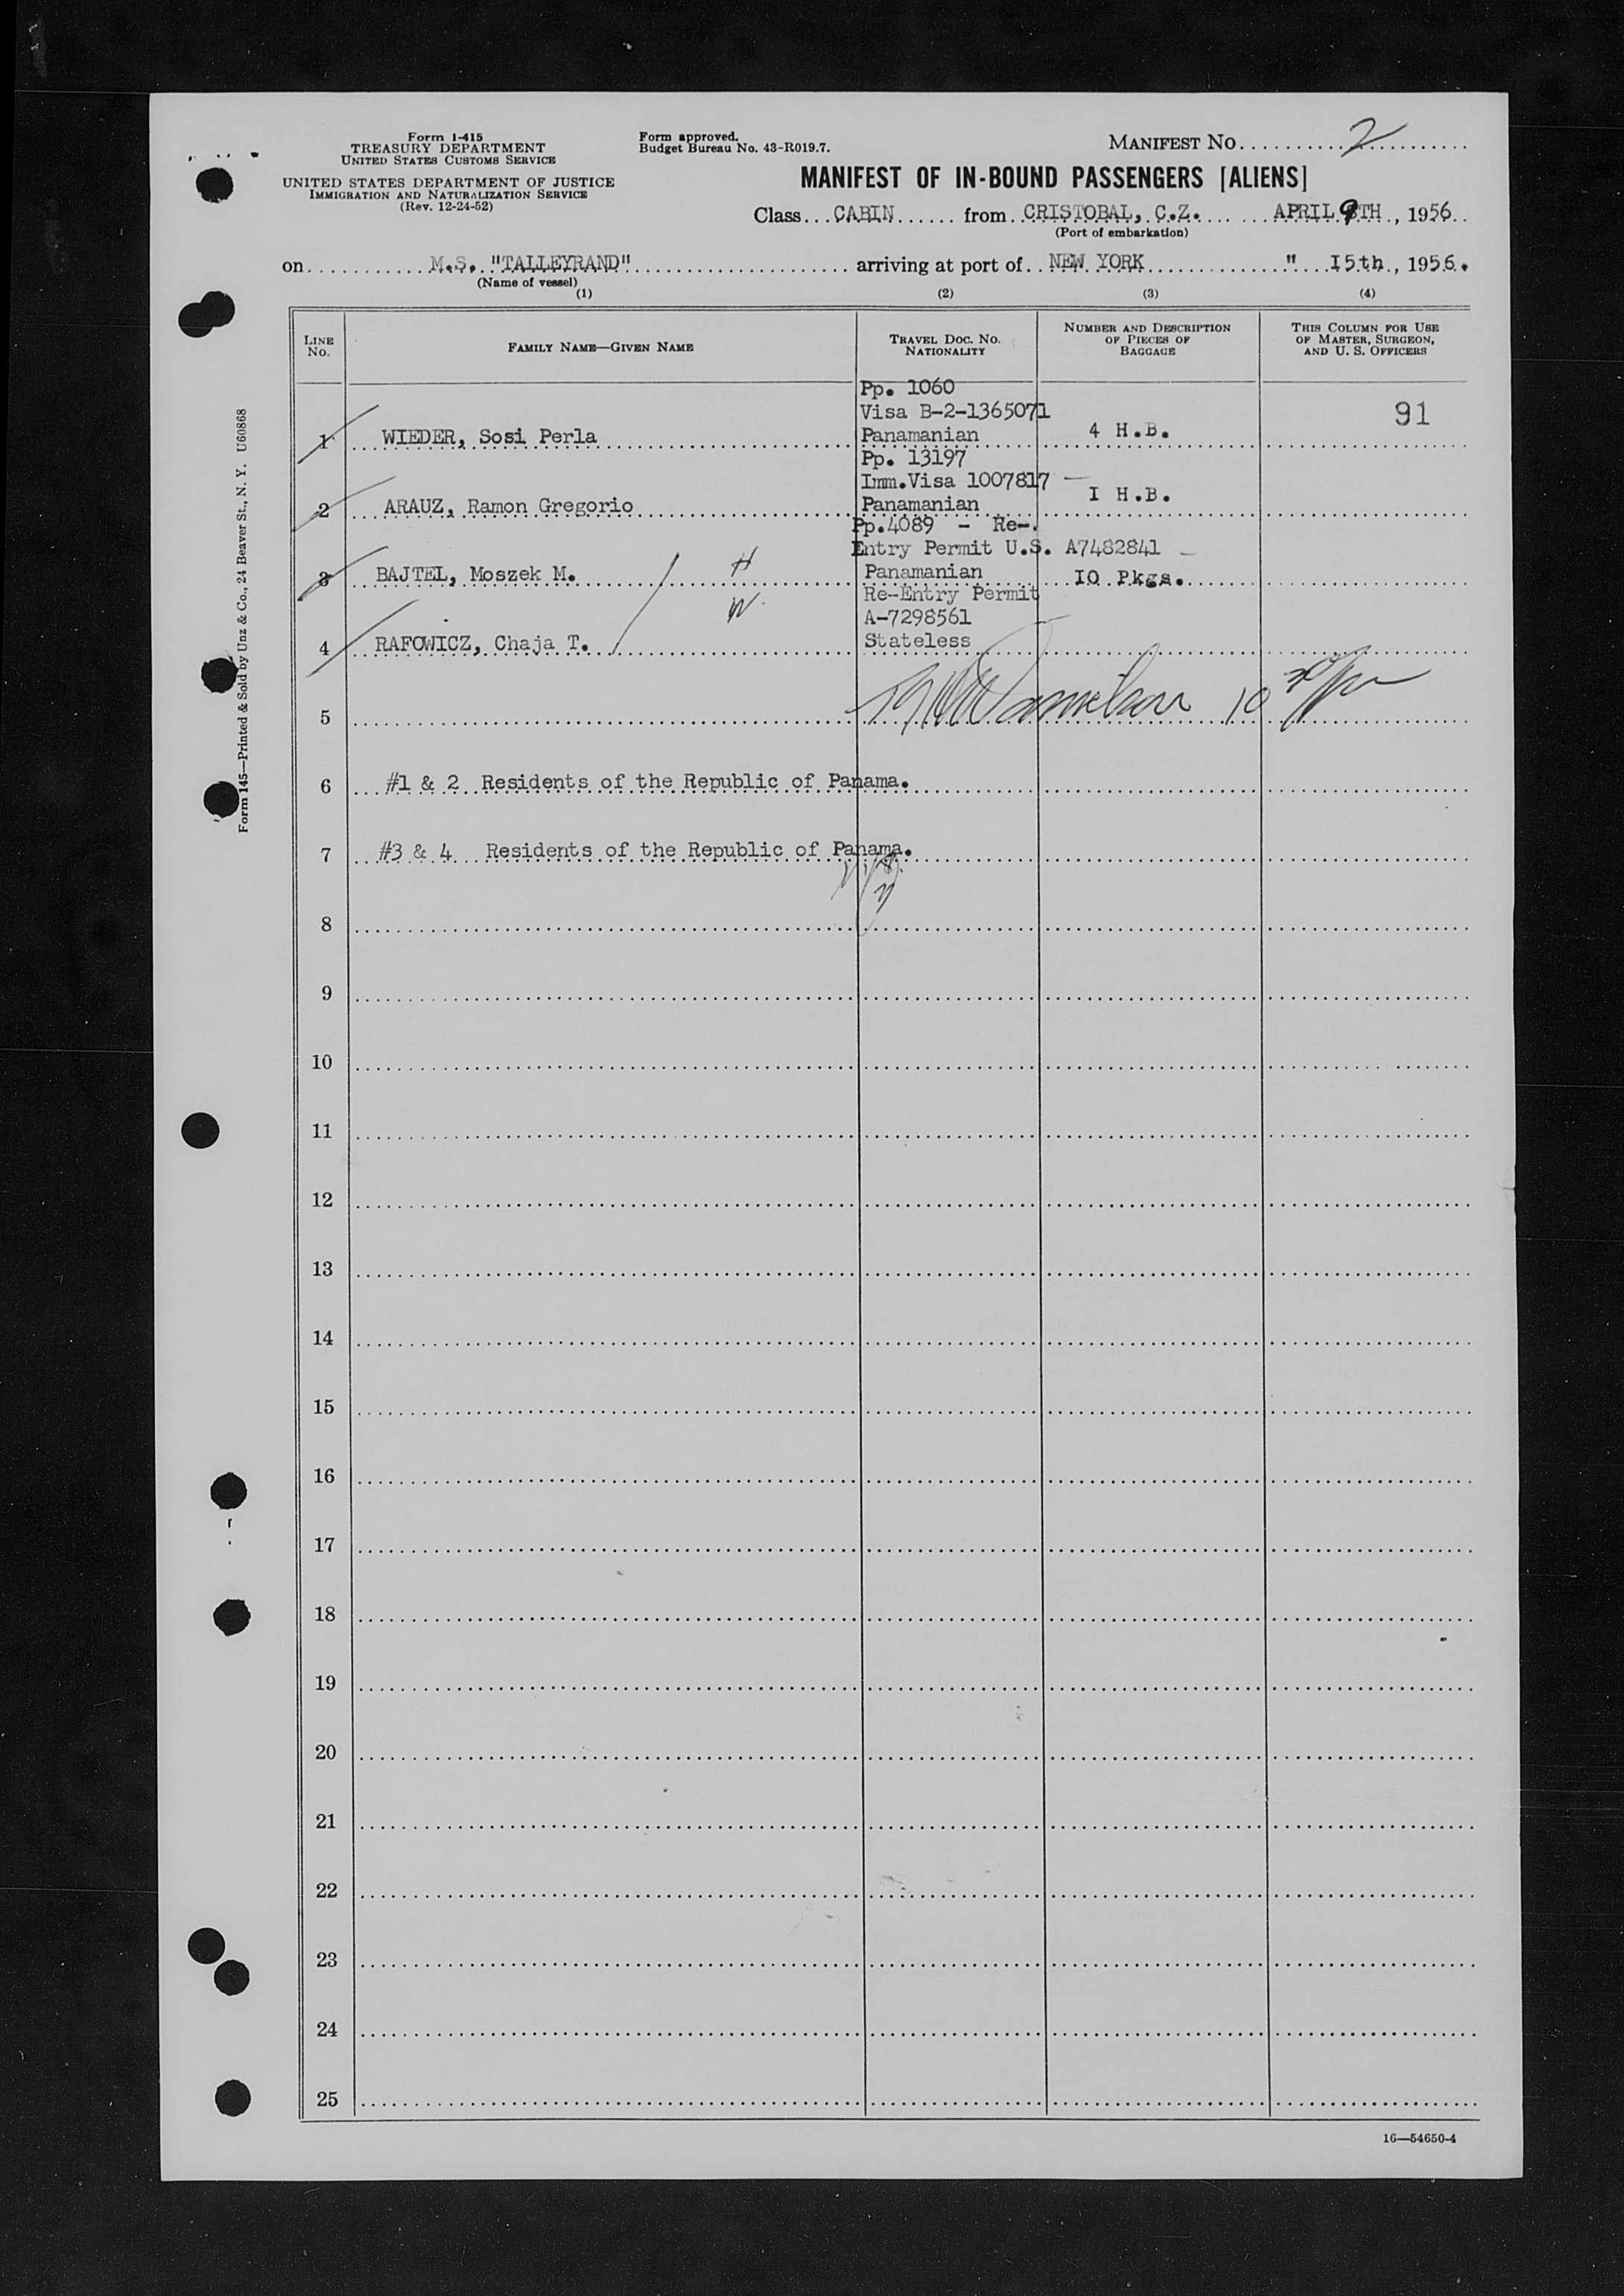 Form I-415
TREASURY DEPARTMENT
UNITED STATES CUSTOMS SERVICE
UNITED STATES DEPARTMENT OF JUSTICE
IMMIGRATION AND NATURALIZATION SERVICE
(Rev. 12-24-52)
Form approved.
Budget Bureau No. 43-R019.7.
MANIFEST NO. 2
MANIFEST OF IN-BOUND PASSENGERS [ALIENS]
Class CABIN from CRISTOBAL, C.Z. APRIL 9TH, 1956
(Port of embarkation)
on M.S. "TALLEYRAND" arriving at port of NEW YORK " 15th, 1956.
(Name of vessel)
(1) (2) (3) (4)
LINE NO.
FAMILY NAME—GIVEN NAME
TRAVEL DOC. NO. NATIONALITY
NUMBER AND DESCRIPTION OF PIECES OF BAGGAGE
THIS COLUMN FOR USE OF MASTER, SURGEON, AND U. S. OFFICERS
Pp. 1060
Visa B-2-1365071
91
1 WIEDER, Sosi Perla Panamanian 4 H.B.
Pp. 13197
Imm.Visa 1007817 —
2 ARAUZ, Ramon Gregorio Panamanian I H.B.
Pp.4089 - Re-
Entry Permit U.S. A7482841 —
3 BAJTEL, Moszek M. H Panamanian IO Pkgs.
Re-Entry Permit
W
A-7298561
4 RAFOWICZ, Chaja T. Stateless
5 10
6 #1 & 2 Residents of the Republic of Panama.
7 #3 & 4 Residents of the Republic of Panama.
8
9
10
11
12
13
14
15
16
17
18
19
20
21
22
23
24
25
16—54650-4
Form 145—Printed & Sold by Unz & Co., 24 Beaver St., N. Y. U60868